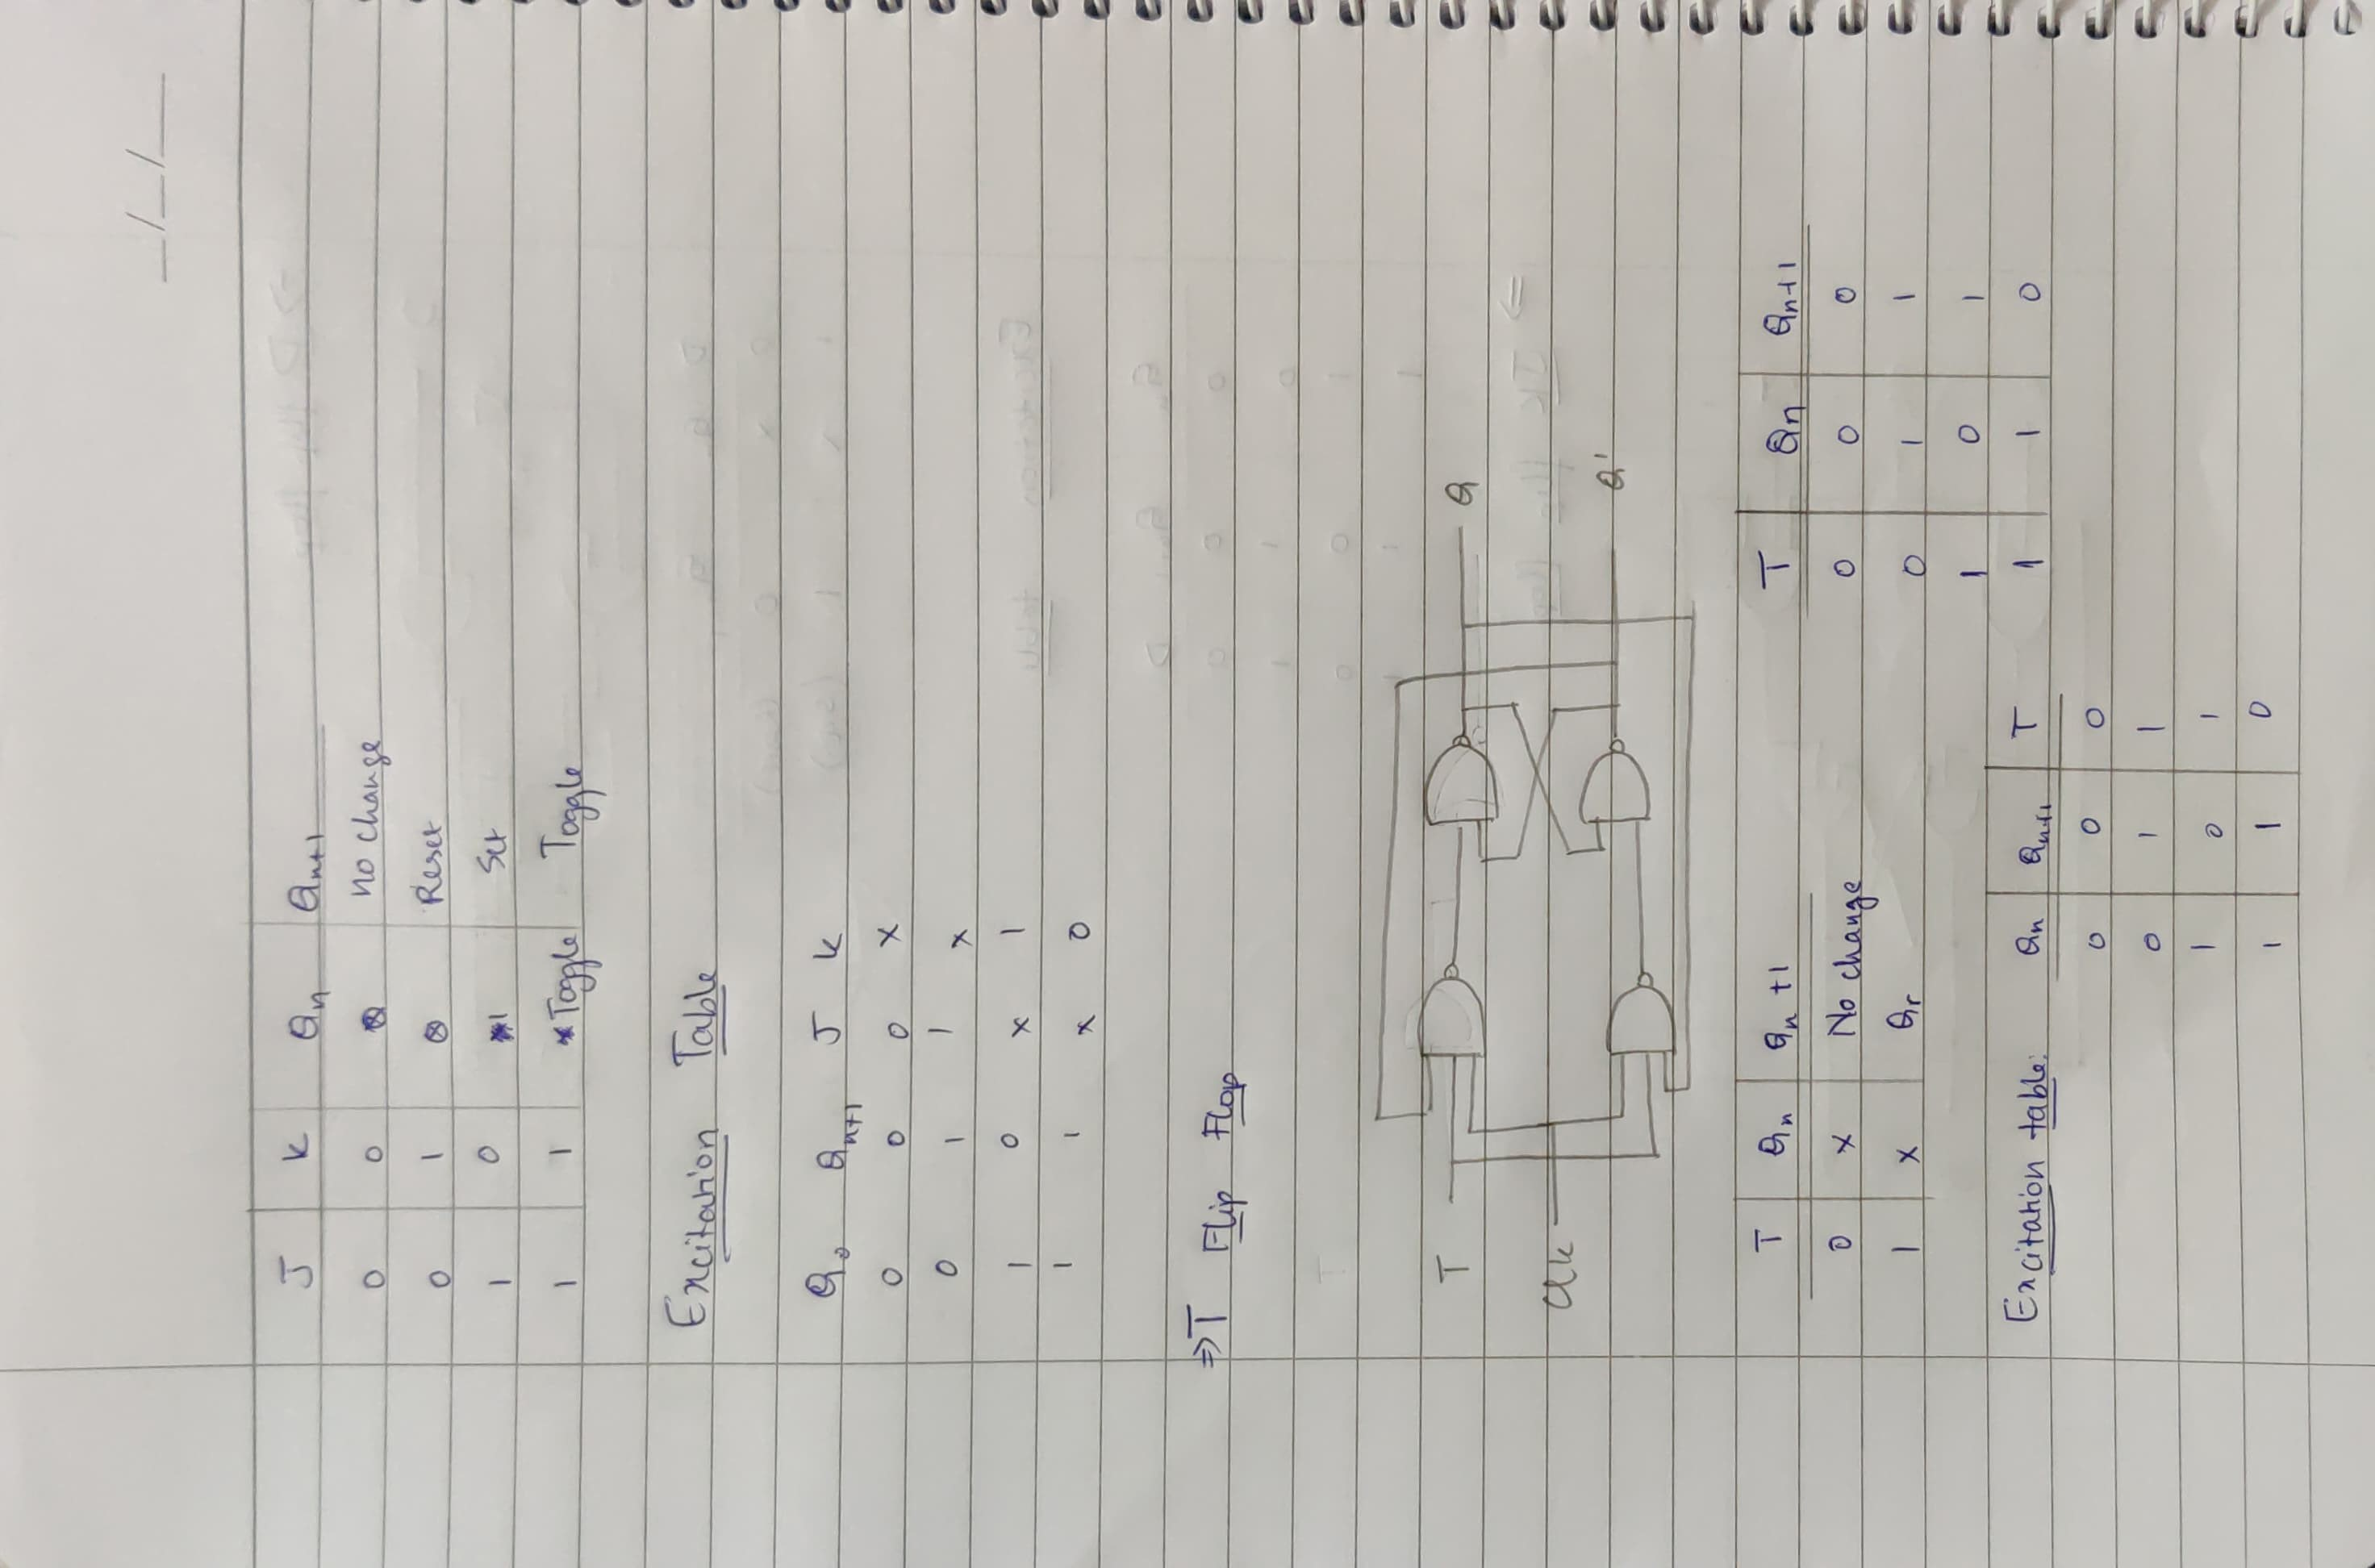 __/__/__
J K Qn Qn+1
0 0 No change
0 1 Reset
1 0 1 Set
1 1 Toggle Toggle
Excitation Table
Qn+1 J K
0 0 0 X
0 1 1 X
1 0 X 1
1 1 X 0
⇒ T Flip Flop
T Q
Clk Q'
T Qn Qn+1
0 X No change
1 X
T Qn Qn+1
0 0 0
0 1 1
1 0 1
1 1 0
Excitation table:
Qn Qn+1 T
0 0 0
0 1 1
1 0 1
1 1 0